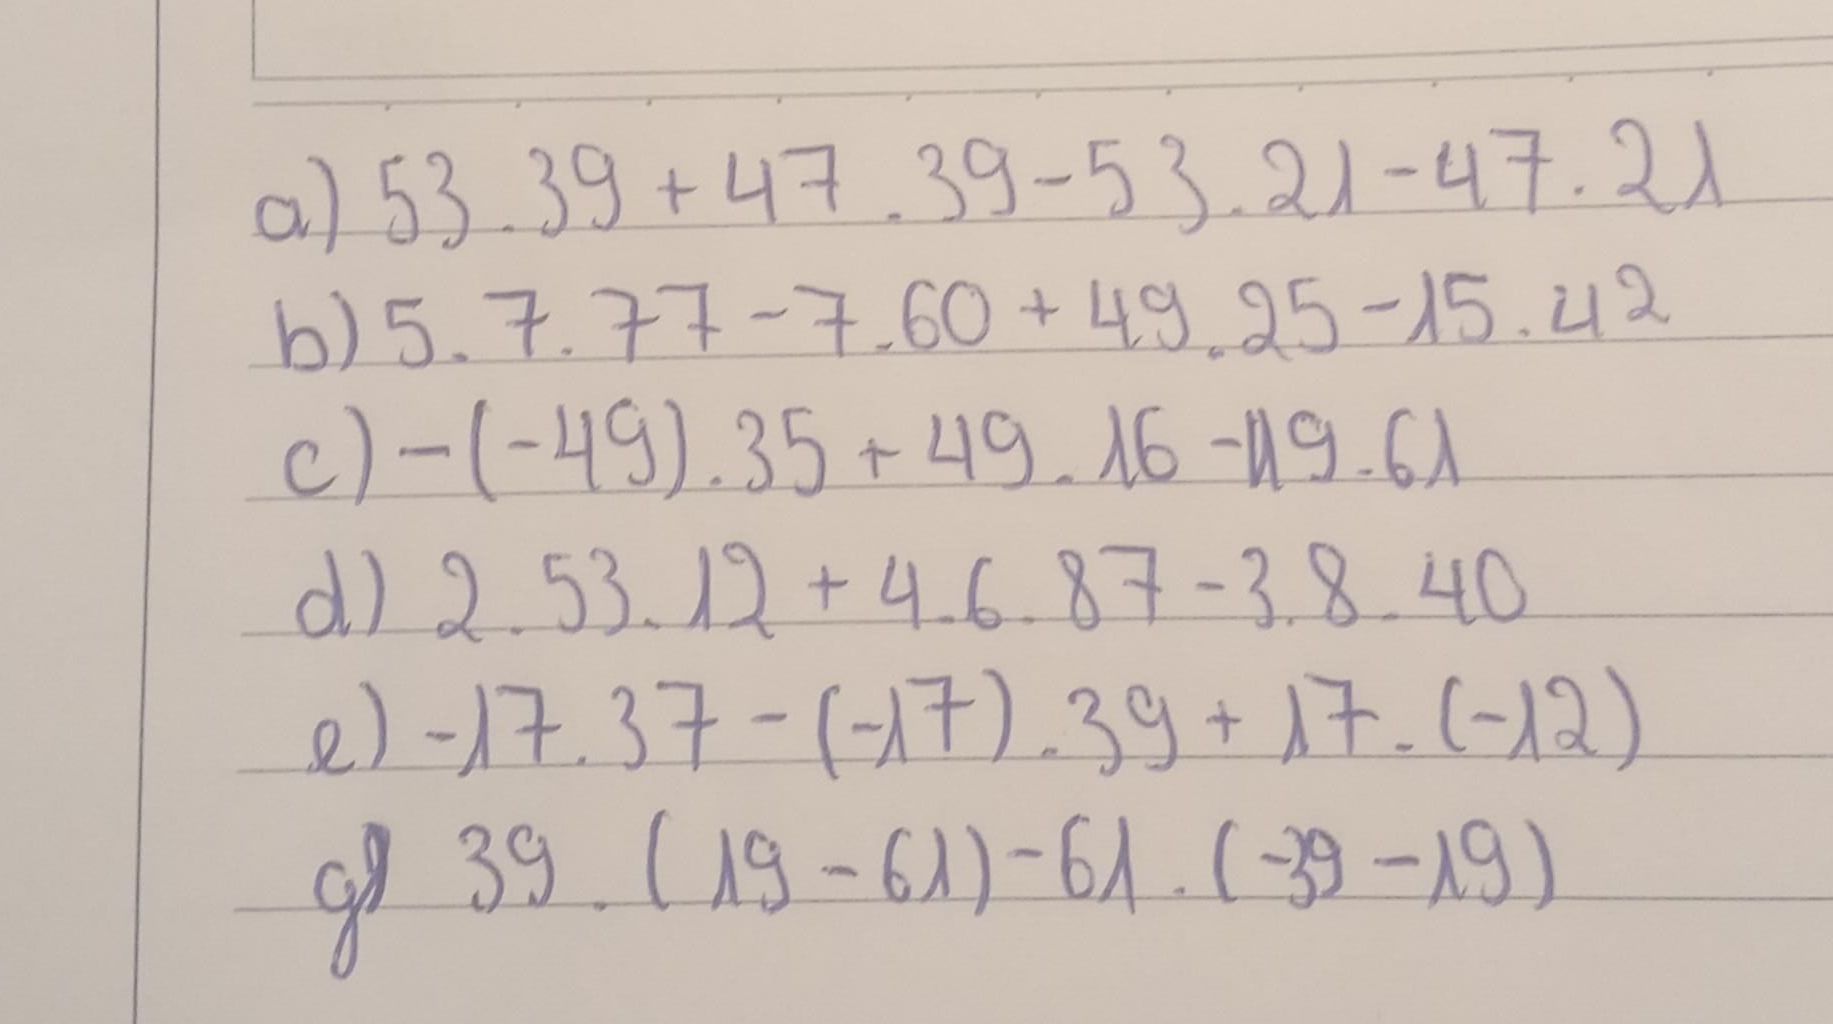 a) 53.39 + 47.39 - 53.21 - 47.21
b) 5.7.77 - 7.60 + 49.25 - 15.42
c) -(-49).35 + 49.16 - 49.61
d) 2.53.12 + 4.6.87 - 3.8.40
e) -17.37 - (-17).39 + 17.(-12)
g) 39.(19 - 61) - 61.(-39 - 19)